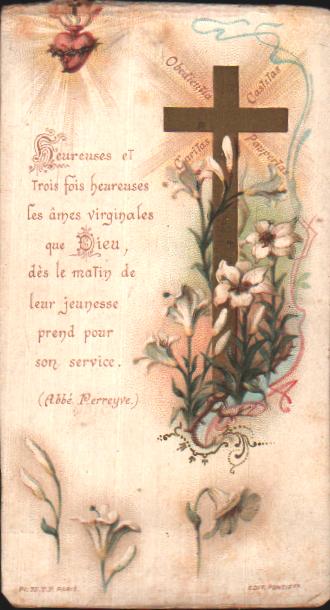 Obedientia
Castitas
Caritas
Paupertas
Heureuses et
trois fois heureuses
les âmes virginales
que Dieu,
dès le matin de
leur jeunesse
prend pour
son service.
(Abbé Perreyve.)
PARIS
EDIT. PONTIFX